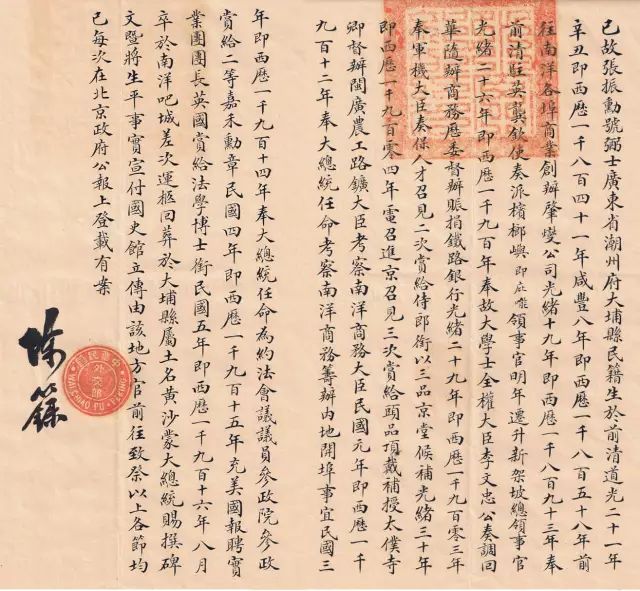 已故張振勳號弼士廣東省潮州府大埔縣民籍生於前清道光二十一年
辛丑即西歷一千八百四十一年咸豐八年即西歷一千八百五十八年前
往南洋各埠商業創辦肇燮公司光緒十九年即西歷一千八百九十三年奉
前清駐英龔欽使奏派檳榔嶼即庇能領事官明年遷升新架坡總領事官
光緒二十六年即西歷一千九百年奉故大學士全權大臣李文忠公奏調回
華隨辦商務歷委督辦賑捐鐵路銀行光緒二十九年即西歷一千九百零三年
奉軍機大臣奏保人才召見二次賞給侍郎銜以三品京堂候補光緒三十年
即西歷一千九百零四年電召進京召見三次賞給頭品頂戴補授太僕寺
卿督辦閩廣農工路鑛大臣考察南洋商務大臣民國元年即西歷一千
九百十二年奉大總統任命考察南洋商務籌辦內地開埠事宜民國三
年即西歷一千九百十四年奉大總統任命為約法會議議員參政院參政
賞給二等嘉禾勳章民國四年即西歷一千九百十五年充美國報聘實
業團團長英國賞給法學博士銜民國五年即西歷一千九百十六年八月
卒於南洋吧城差次運柩回葬於大埔縣屬土名黃沙蒙大總統賜撰碑
文暨將生平事實宣付國史館立傳由該地方官前往致祭以上各節均
已每次在北京政府公報上登載有案
陳籙
中華民國
外交部
WAI CHIAO PU
PEKING